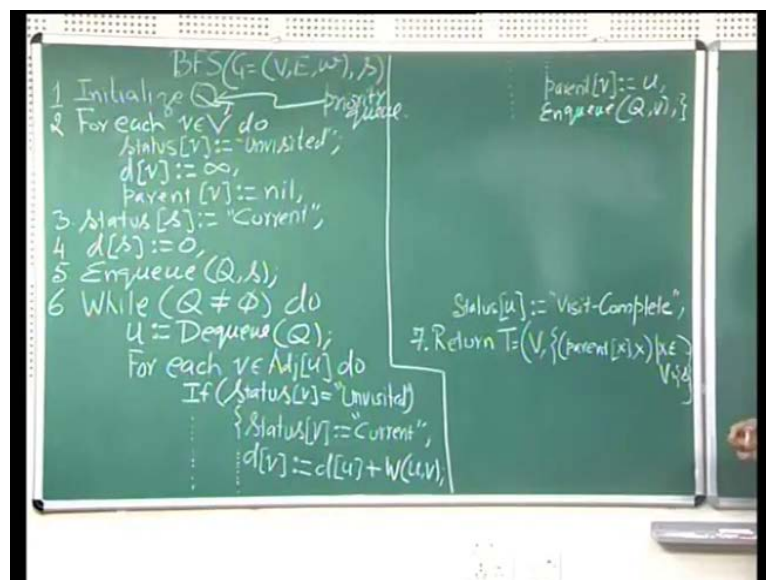 BFS(G=(V,E,w),s)
1 Initialize Q priority queue.
2 For each v∈V do
status[v]:="Unvisited";
d[v]:=∞,
parent[v]:=nil,
3. status[s]:="Current",
4 d[s]:=0,
5 Enqueue(Q,s);
6 While (Q≠ϕ) do
u:=Dequeue(Q);
For each v∈Adj[u] do
If (status[v]="Unvisited")
{status[v]:="Current",
d[v]:=d[u]+W(u,v),
parent[v]:=u,
Enqueue(Q,v),}
Status[u]:="Visit-Complete",
7. Return T=(V,{(parent[x],x)|x∈